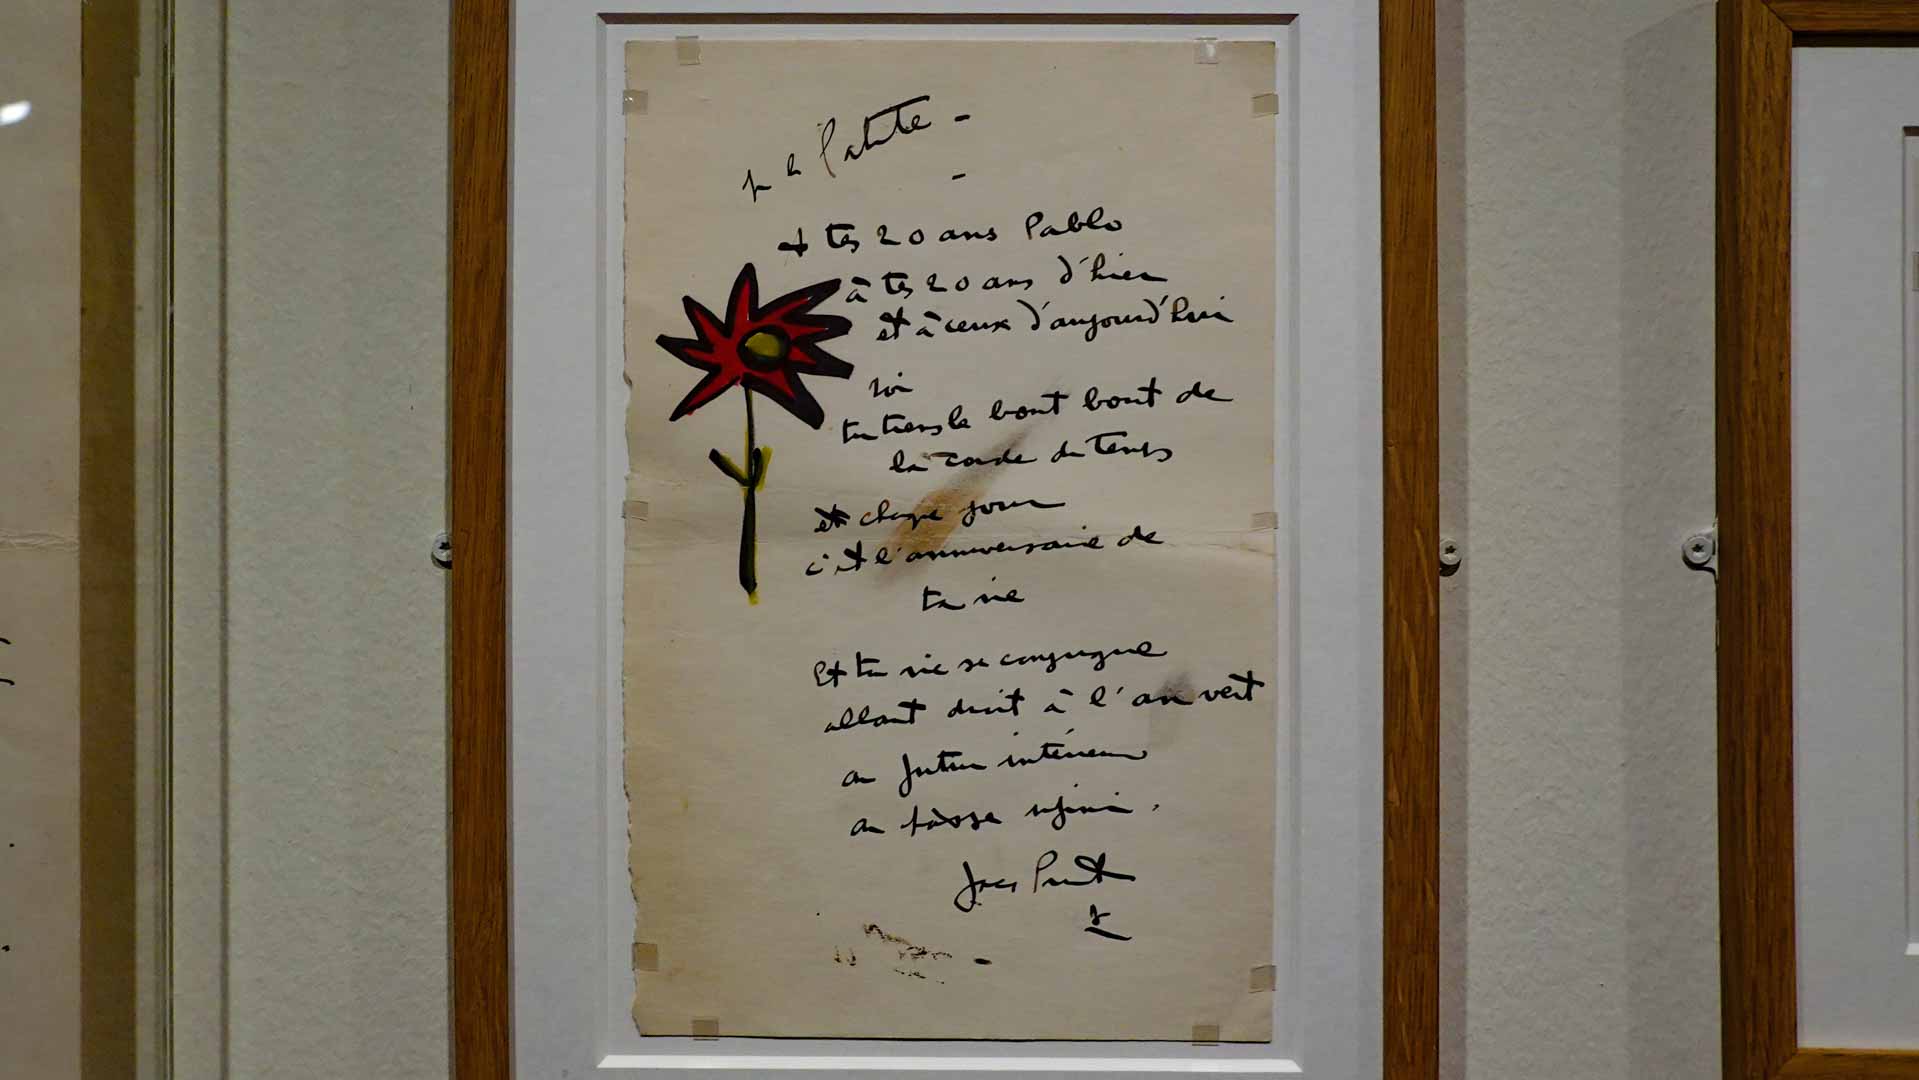 à tes 20 ans Pablo
à tes 20 ans d'hier
et à ceux d'aujourd'hui
toi
tu tiens le bout bout de
la corde du temps
et chaque jour
c'est l'anniversaire de
ta vie
Et ta vie se conjugue
allant droit à l'an vert
au futur intérieur
au passé infini.